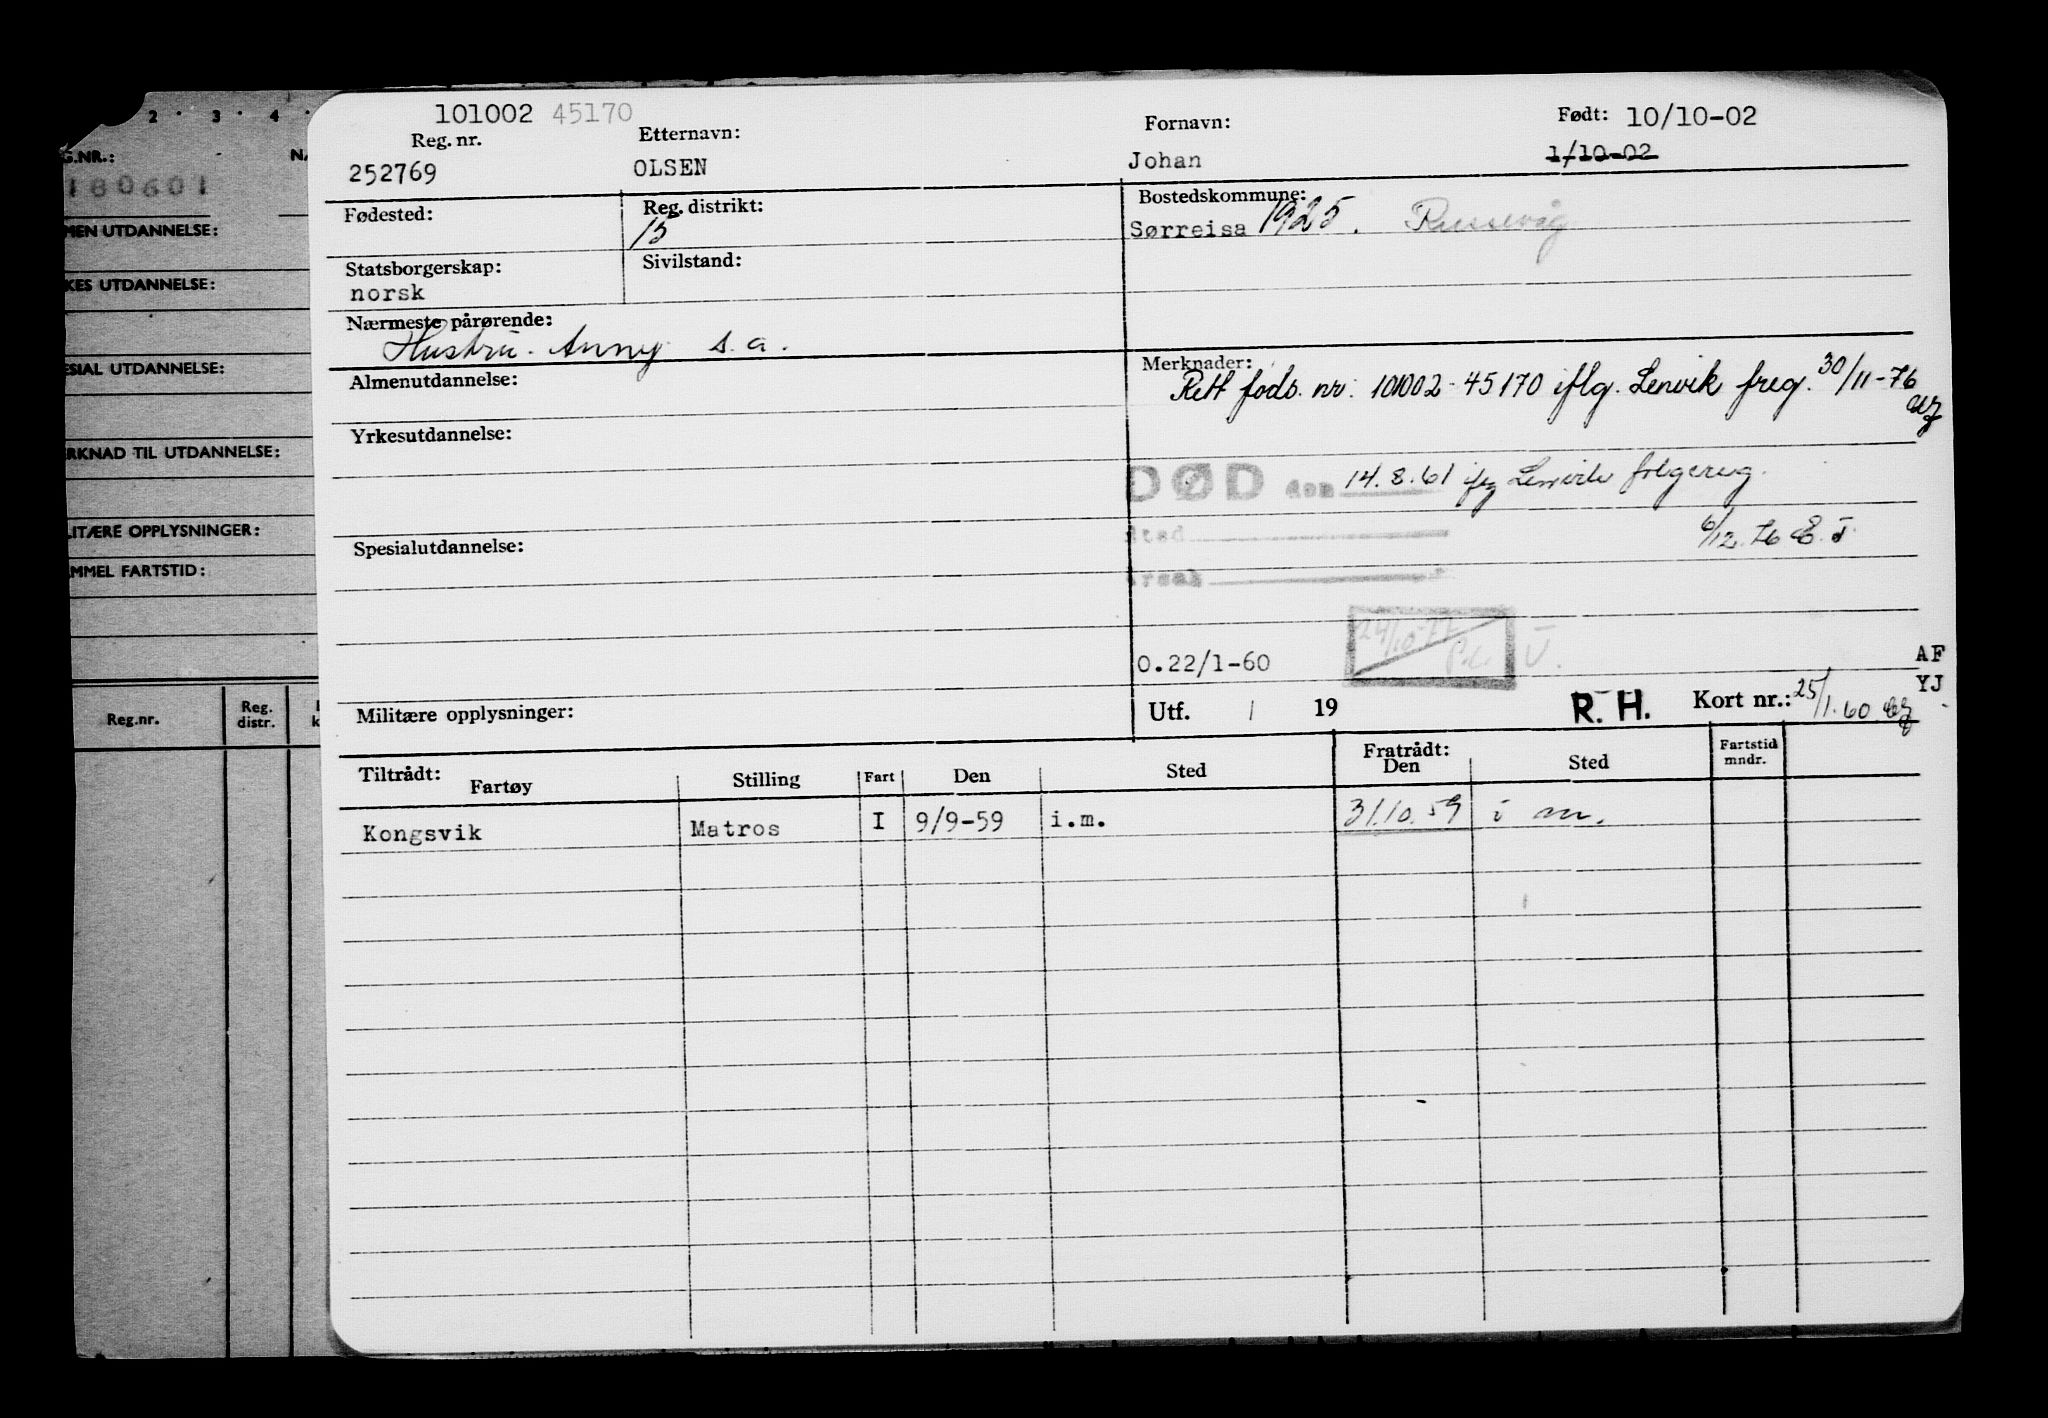 2 · 3 · 4 ·
G.NR.:
180601
MEN UTDANNELSE:
KES UTDANNELSE:
SIAL UTDANNELSE:
RKNAD TIL UTDANNELSE:
LITÆRE OPPLYSNINGER:
MMEL FARTSTID:
Reg.nr.
Reg. distr.
101002 45170
Reg. nr.
Etternavn:
Fornavn:
Født: 10/10-02
252769
OLSEN
Johan
1/10-02
Fødested:
Reg. distrikt:
15
Bostedskommune:
Sørreisa 1925. Russevåg
Statsborgerskap:
norsk
Sivilstand:
Nærmeste pårørende:
Hustru. Anny s.a.
Almenutdannelse:
Merknader:
Rett føds. nr. 101002-45170 iflg. Lenvik freg. 30/11-76
Yrkesutdannelse:
DØD den 14.8.61 ifg Lenvik folgereg.
6/12.76 E.J.
Spesialutdannelse:
0.22/1-60
24/10-77
AF
YJ
Militære opplysninger:
Utf. / 19
R. H.
Kort nr.: 25/1.60
Tiltrådt:
Fartøy
Stilling
Fart
Den
Sted
Fratrådt:
Den
Sted
Fartstid
mndr.
Kongsvik
Matros
I
9/9-59
i.m.
31.10.59
i m.